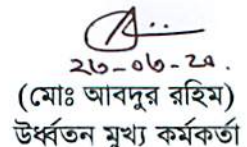 ২৩-০৬-২০.
(মোঃ আবদুর রহিম)
উর্ধ্বতন মুখ্য কর্মকর্তা